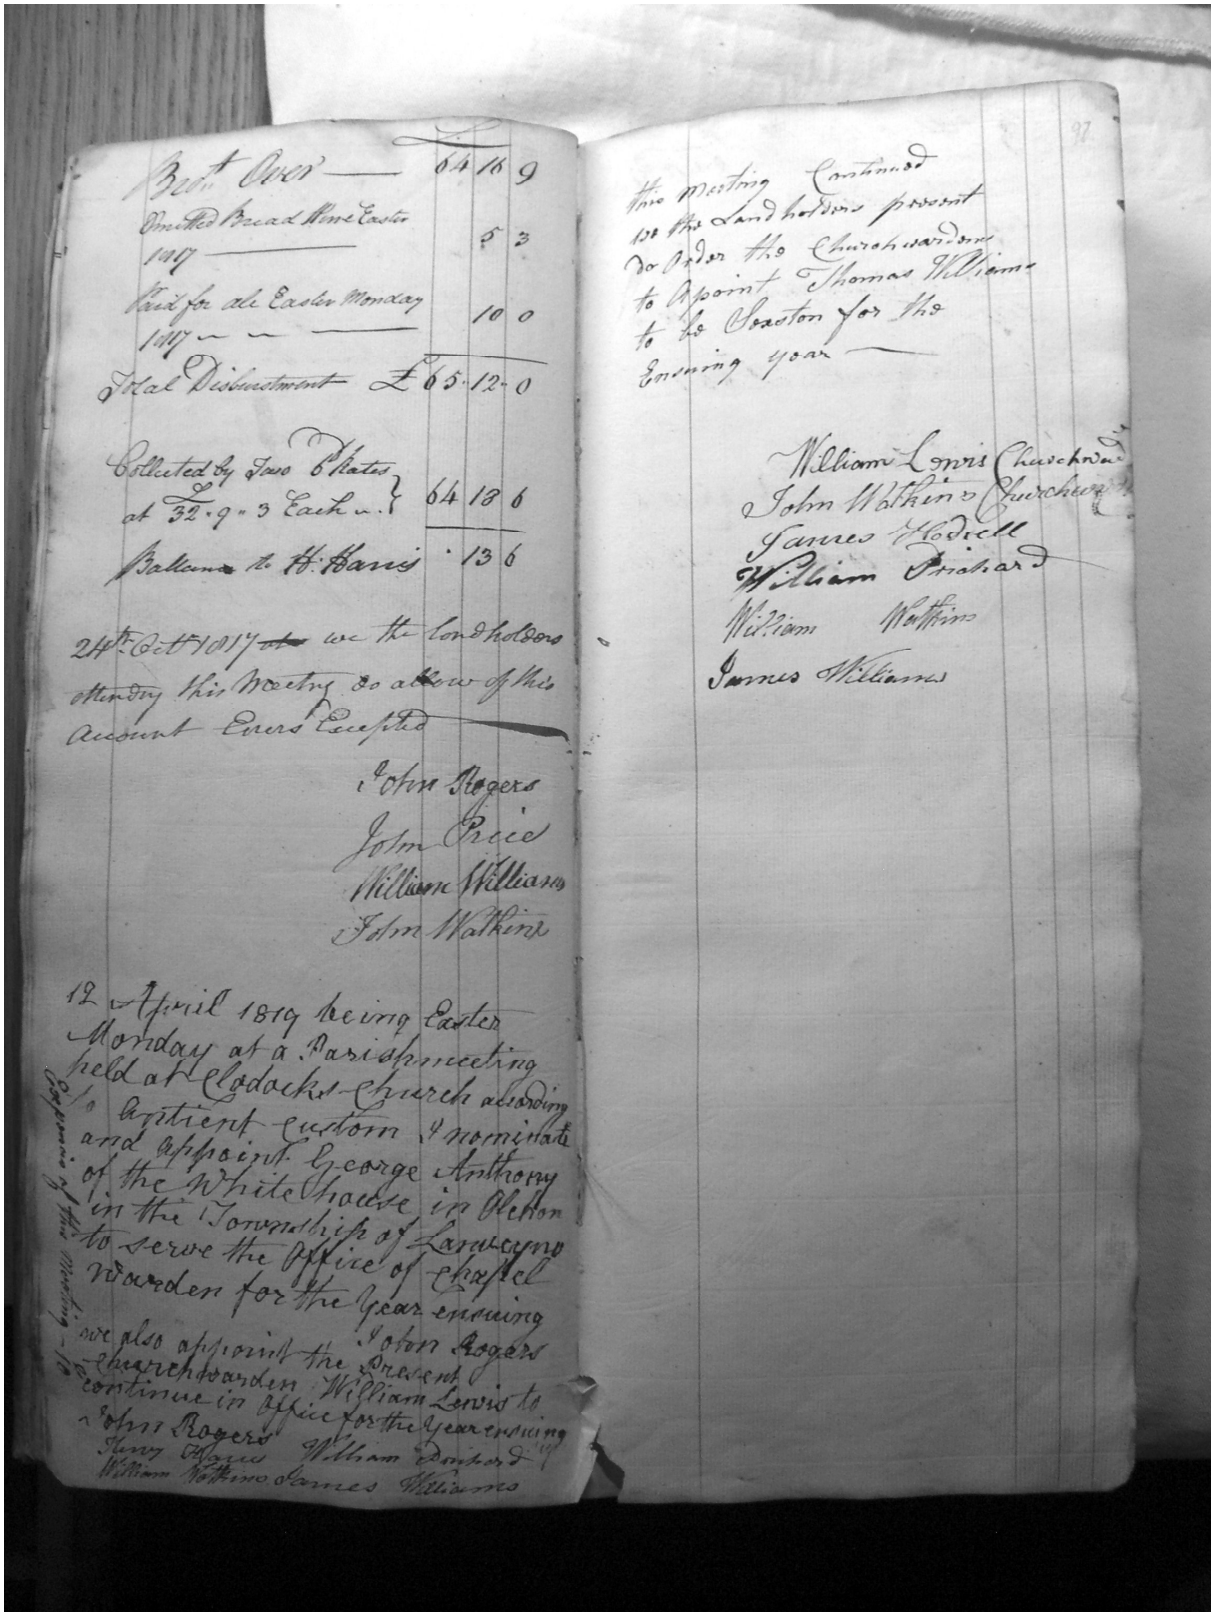 £
Bro.tt Over — 64 16 9
Omitted Bread Wine Easter
1817 — 5 3
Paid for ale Easter Monday
1817 — 10 0
Total Disburstment £ 65 - 12 - 0
Collected by Two Rates
at £32 " 9 " 3 Each } 64 18 6
Ballance to H. Harris 13 6
24th Octr 1817 we the landholders
attending this Meeting do allow of this
account Errors Excepted
John Rogers
John Price
William Williams
John Watkins
12 April 1819 being Easter
Monday at a Parish meeting
held at Clodocks Church according
to Antient Custom I nominate
and appoint George Anthony
of the White house in Olchon
in the Township of Lanveyno
to serve the Office of Chapel
Warden for the Year ensuing
John Rogers
we also appoint the Present
Churchwarden William Lewis to
continue in Office for the Year ensuing
John Rogers
Henry Harris William Prichard
William Watkins James Williams
Expencis of this Meeting - 10
97
this Meeting Continued
we the Landholders present
do Order the Churchwardens
to Apoint Thomas Williams
to be Sexston for the
Ensuing year —
William Lewis Churchwarden
John Watkins Churchwarden
James Hodiell
William Prichard
William Watkins
James Williams